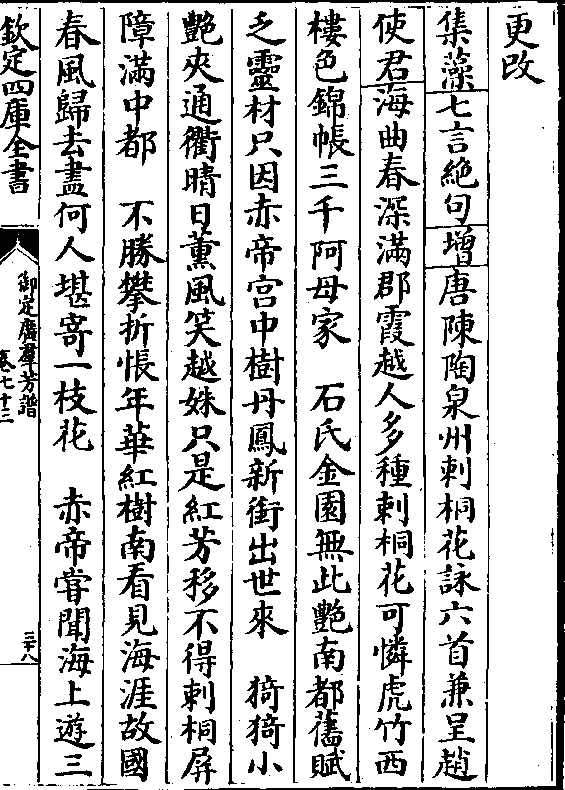 更改
集藻七言絶句增唐陳陶泉州刺桐花詠六首兼呈趙
使君海曲春深滿郡霞越人多種刺桐花可憐虎竹西
樓色錦帳三千阿母家　石氏金園無此艷南都舊賦
乏靈材只因赤帝宫中樹丹鳳新銜出世來　猗猗小
艷夾通衢晴日薰風笑越姝只是紅芳移不得刺桐屏
障滿中都　不勝攀折悵年華紅樹南看見海涯故國
春風歸去盡何人堪寄一枝花　赤帝嘗聞海上遊三
欽定四庫全書
御定廣羣芳譜
卷七十三
三十八